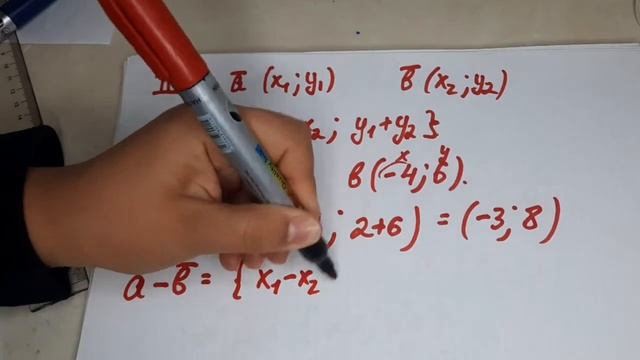 ā (x₁; y₁) b̄ (x₂; y₂)
x₂; y₁+y₂}
x y
b(-4; 6).
; 2+6) = (-3; 8)
a - b̄ = { x₁-x₂